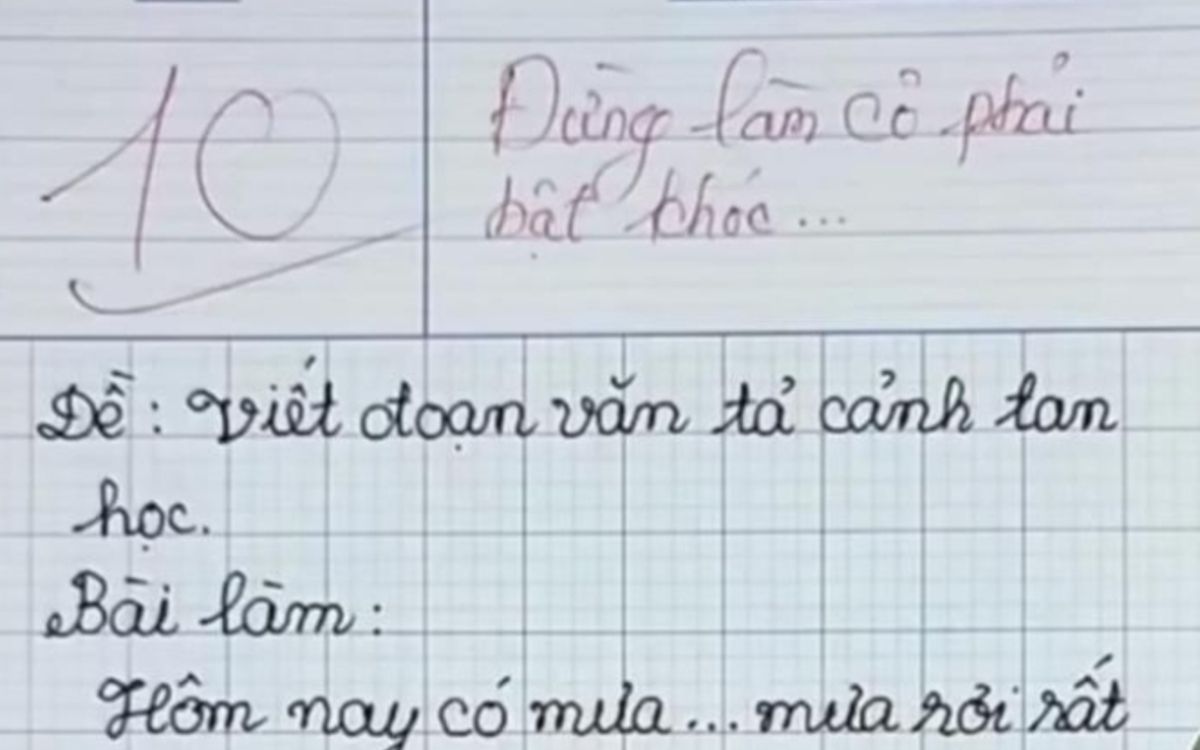 10
Đừng làm cô phải
bật khóc...
Đề: Viết đoạn văn tả cảnh tan
học.
Bài làm:
Hôm nay có mưa... mưa rơi rất